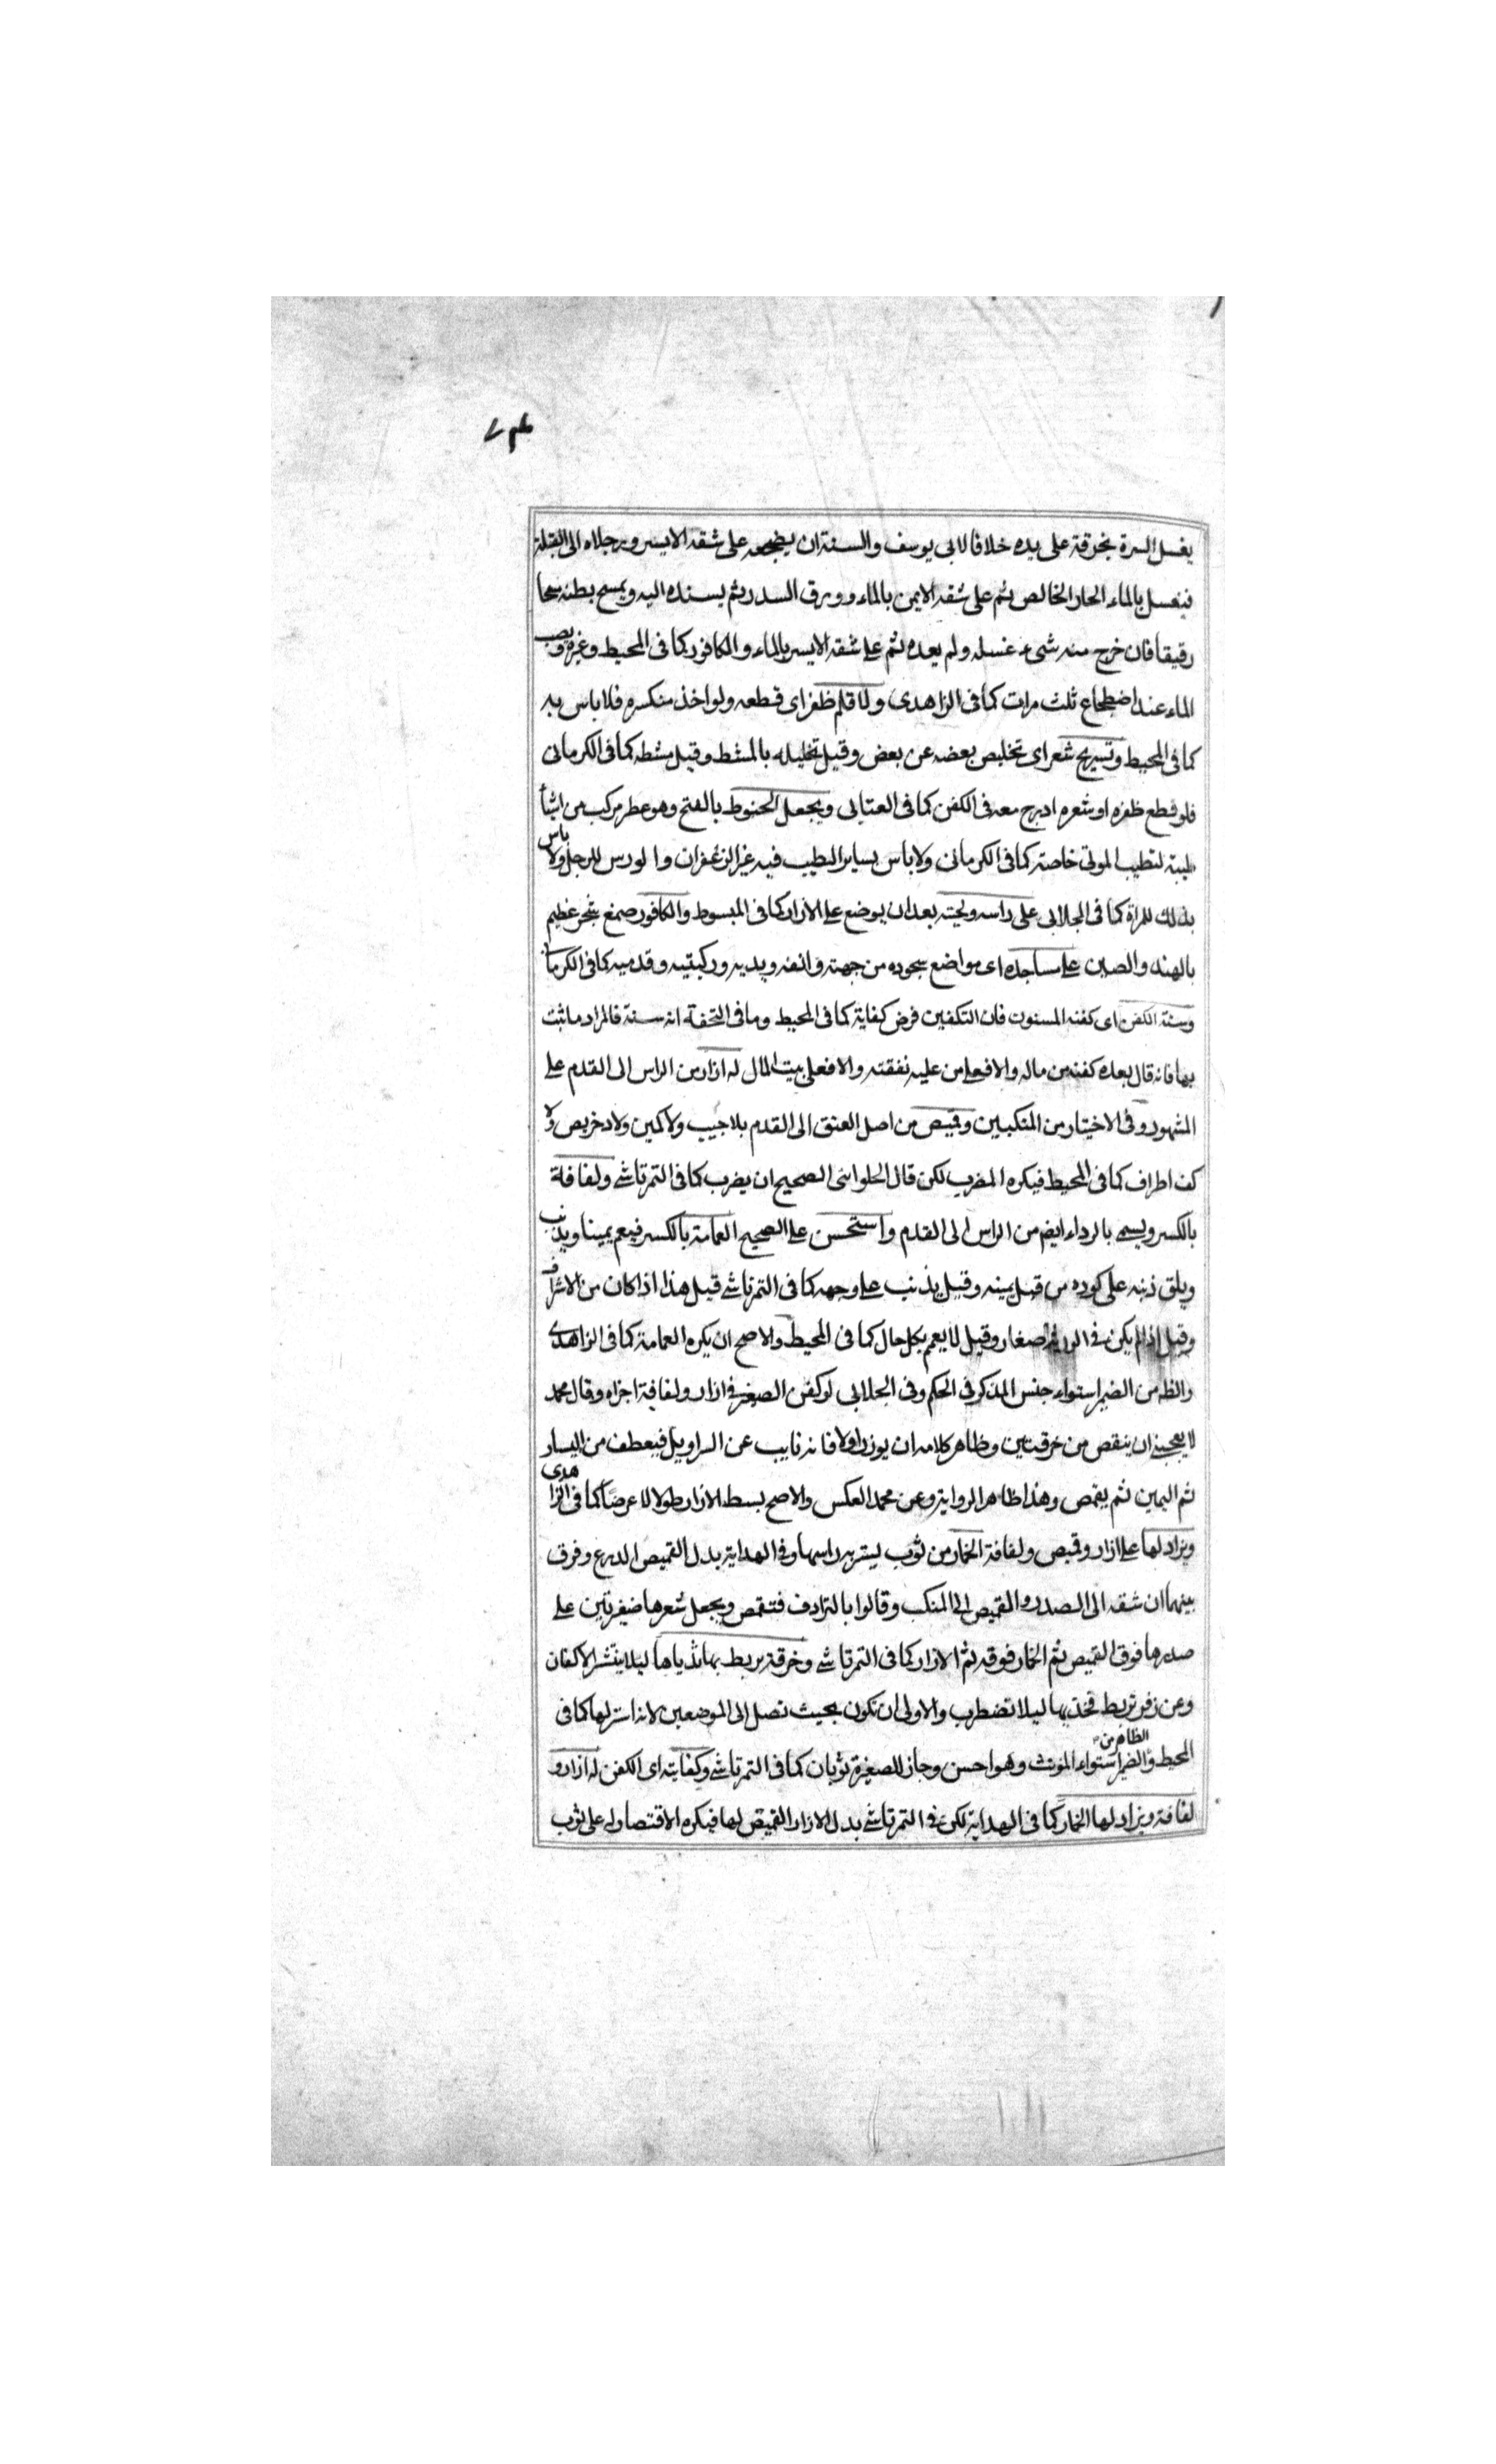 يغسل السرة بخرقة على يده خلافا لابى يوسف والسنة ان يضجعه على شقه الايسر ورجلاه الى القبلة
فيغسل بالماء الحار الخالص ثم على شقه الايمن بالماء وورق السدر ثم يسنده اليه ويمسح بطنه مسحا
رقيقا فان خرج منه شىء غسله ولم يعده ثم على شقه الايسر بالماء والكافور كما فى المحيط وغيره ويصب
الماء عند اضطجاع ثلث مرات كما فى الزاهدى ولا قلم ظفر اى قطعه ولو اخذ منكسره فلا باس به
كما فى المحيط وتسريح شعر اى تخليص بعضه عن بعض وقيل تخليله بالمشط وقيل مشطه كما فى الكرمانى
فلو قطع ظفره او شعره ادرج معه فى الكفن كما فى العتابى ويجعل الحنوط بالفتح وهو عطر مركب من اشيأ
طيبة لتطيب الموتى خاصة كما فى الكرمانى ولا باس بساير الطيب فيه غير الزعفران والورس للرجل ولا باس
بذلك للمراة كما فى الجلابى على راسه ولحيته بعد ان يوضع على الازار كما فى المبسوط والكافور صمغ شجر عظيم
بالهند والصين على مساجده اى مواضع سجوده من جبهته وانفه ويديه وركبتيه وقدميه كما فى الكرمانى
وسنة الكفن اى كفنه المسنون فان التكفين فرض كفاية كما فى المحيط وما فى التحفة انه سنة فالمراد ما ثبت
بها فانه قال بعده كفنه من ماله والا فعلى من عليه نفقته والا فعلى بيت المال له ازار من الراس الى القدم على
المشهور وفى الاختيار من المنكبين وقميص من اصل العنق الى القدم بلا جيب ولا كمين ولا دخريص ولا
كف اطراف كما فى المحيط فيكره المضرب لكن قال الحلوانى الصحيح ان يضرب كما فى التمرتاشى ولفافة
بالكسر ويسمى بالرداء ايض من الراس الى القدم واستحسن على الصحيح العمامة بالكسر فيعم يمينا ويذنب
ويلق ذنبه على كوره من قبل يمينه وقيل يذنب على وجهه كما فى التمرتاشى قيل هذا اذا كان من الاشراف
وقيل اذا لم يكن فى الورثة صغار وقيل لا يعمم بكل حال كما فى المحيط والاصح ان يكره العمامة كما فى الزاهدى
والظه من الضمير استواء جنس المذكر فى الحكم وفى الجلابى لو كفن الصغير فى ازار ولفافة اجزاه وقال محمد
لا يعجبنى ان ينقص من خرقتين وظاهر كلامه ان يوزر اولا فانه نايب عن السراويل فيعطف من اليسار
ثم اليمين ثم يقمص وهذا ظاهر الرواية وعن محمد العكس والاصح بسط الازار طولا لا عرضا كما فى الزاهدى
ويزاد لها على ازار وقميص ولفافة الخمار من ثوب يستر به راسها وفى الهداية بدل القميص الدرع وفرق
بينهما ان شقه الى الصدر والقميص الى المنكب وقالوا بالترادف فتقمص ويجعل شعرها ضفيرتين على
صدرها فوق القميص ثم الخمار فوقه ثم الازار كما فى التمرتاشى وخرقة يربط بها ثدياها ليلا ينتشر الاكفان
وعن زفر تربط فخذيها ليلا تضطرب والاولى ان تكون بحيث تصل الى الموضعين لانه استر لها كما فى
المحيط والظاهر من الضمير استواء المؤنث وهو احسن وجاز للصغيرة ثوبان كما فى التمرتاشى وكفايته اى الكفن له ازار و
لفافة ويزاد لها الخمار كما فى الهداية لكن فى التمرتاشى بدل الازار القميص لها فيكره الاقتصار له على ثوب